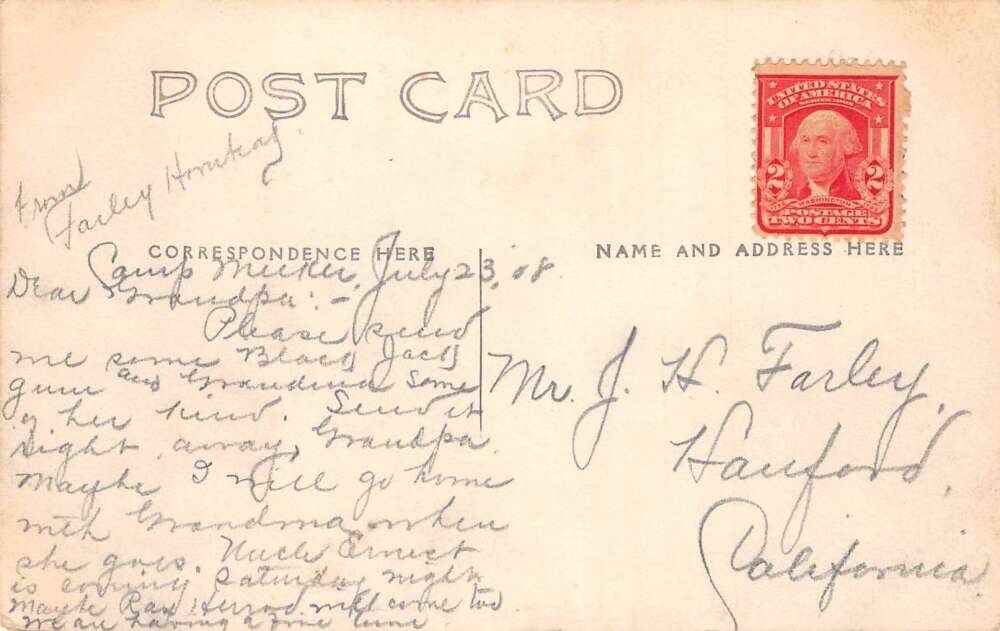 POST CARD
UNITED STATES
OF AMERICA
2 2
WASHINGTON
POSTAGE
TWO CENTS
From
Farley
CORRESPONDENCE HERE
NAME AND ADDRESS HERE
Camp Meeker, July 23, 08
Dear Grandpa:-
Please send
me some Black Jack
gum and Grandma some
of her kind. Send it
right away, Grandpa
Maybe I will go home
with Grandma when
she goes. Uncle Ernest
is coming Saturday night
Maybe Ray will come too
We are having a fine time
Mr. J. H. Farley,
Hanford,
California